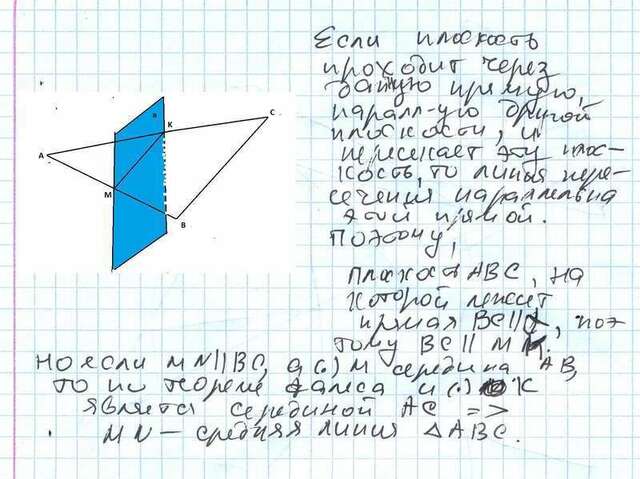 Если плоскость
проходит через
данную прямую,
паралл-ую другой
плоскости, и
пересекает эту плос-
кость, то линия пере-
сечения параллельна
этой прямой.
Поэтому,
плоскость ABC, на
которой лежит
прямая BC || α, поэ
тому BC || MK.
но если MN || BC, а (•) M середина AB,
то по теореме Фалеса и (•) K
является серединой AC =>
MN – средняя линия △ABC.
a
K
C
A
M
B